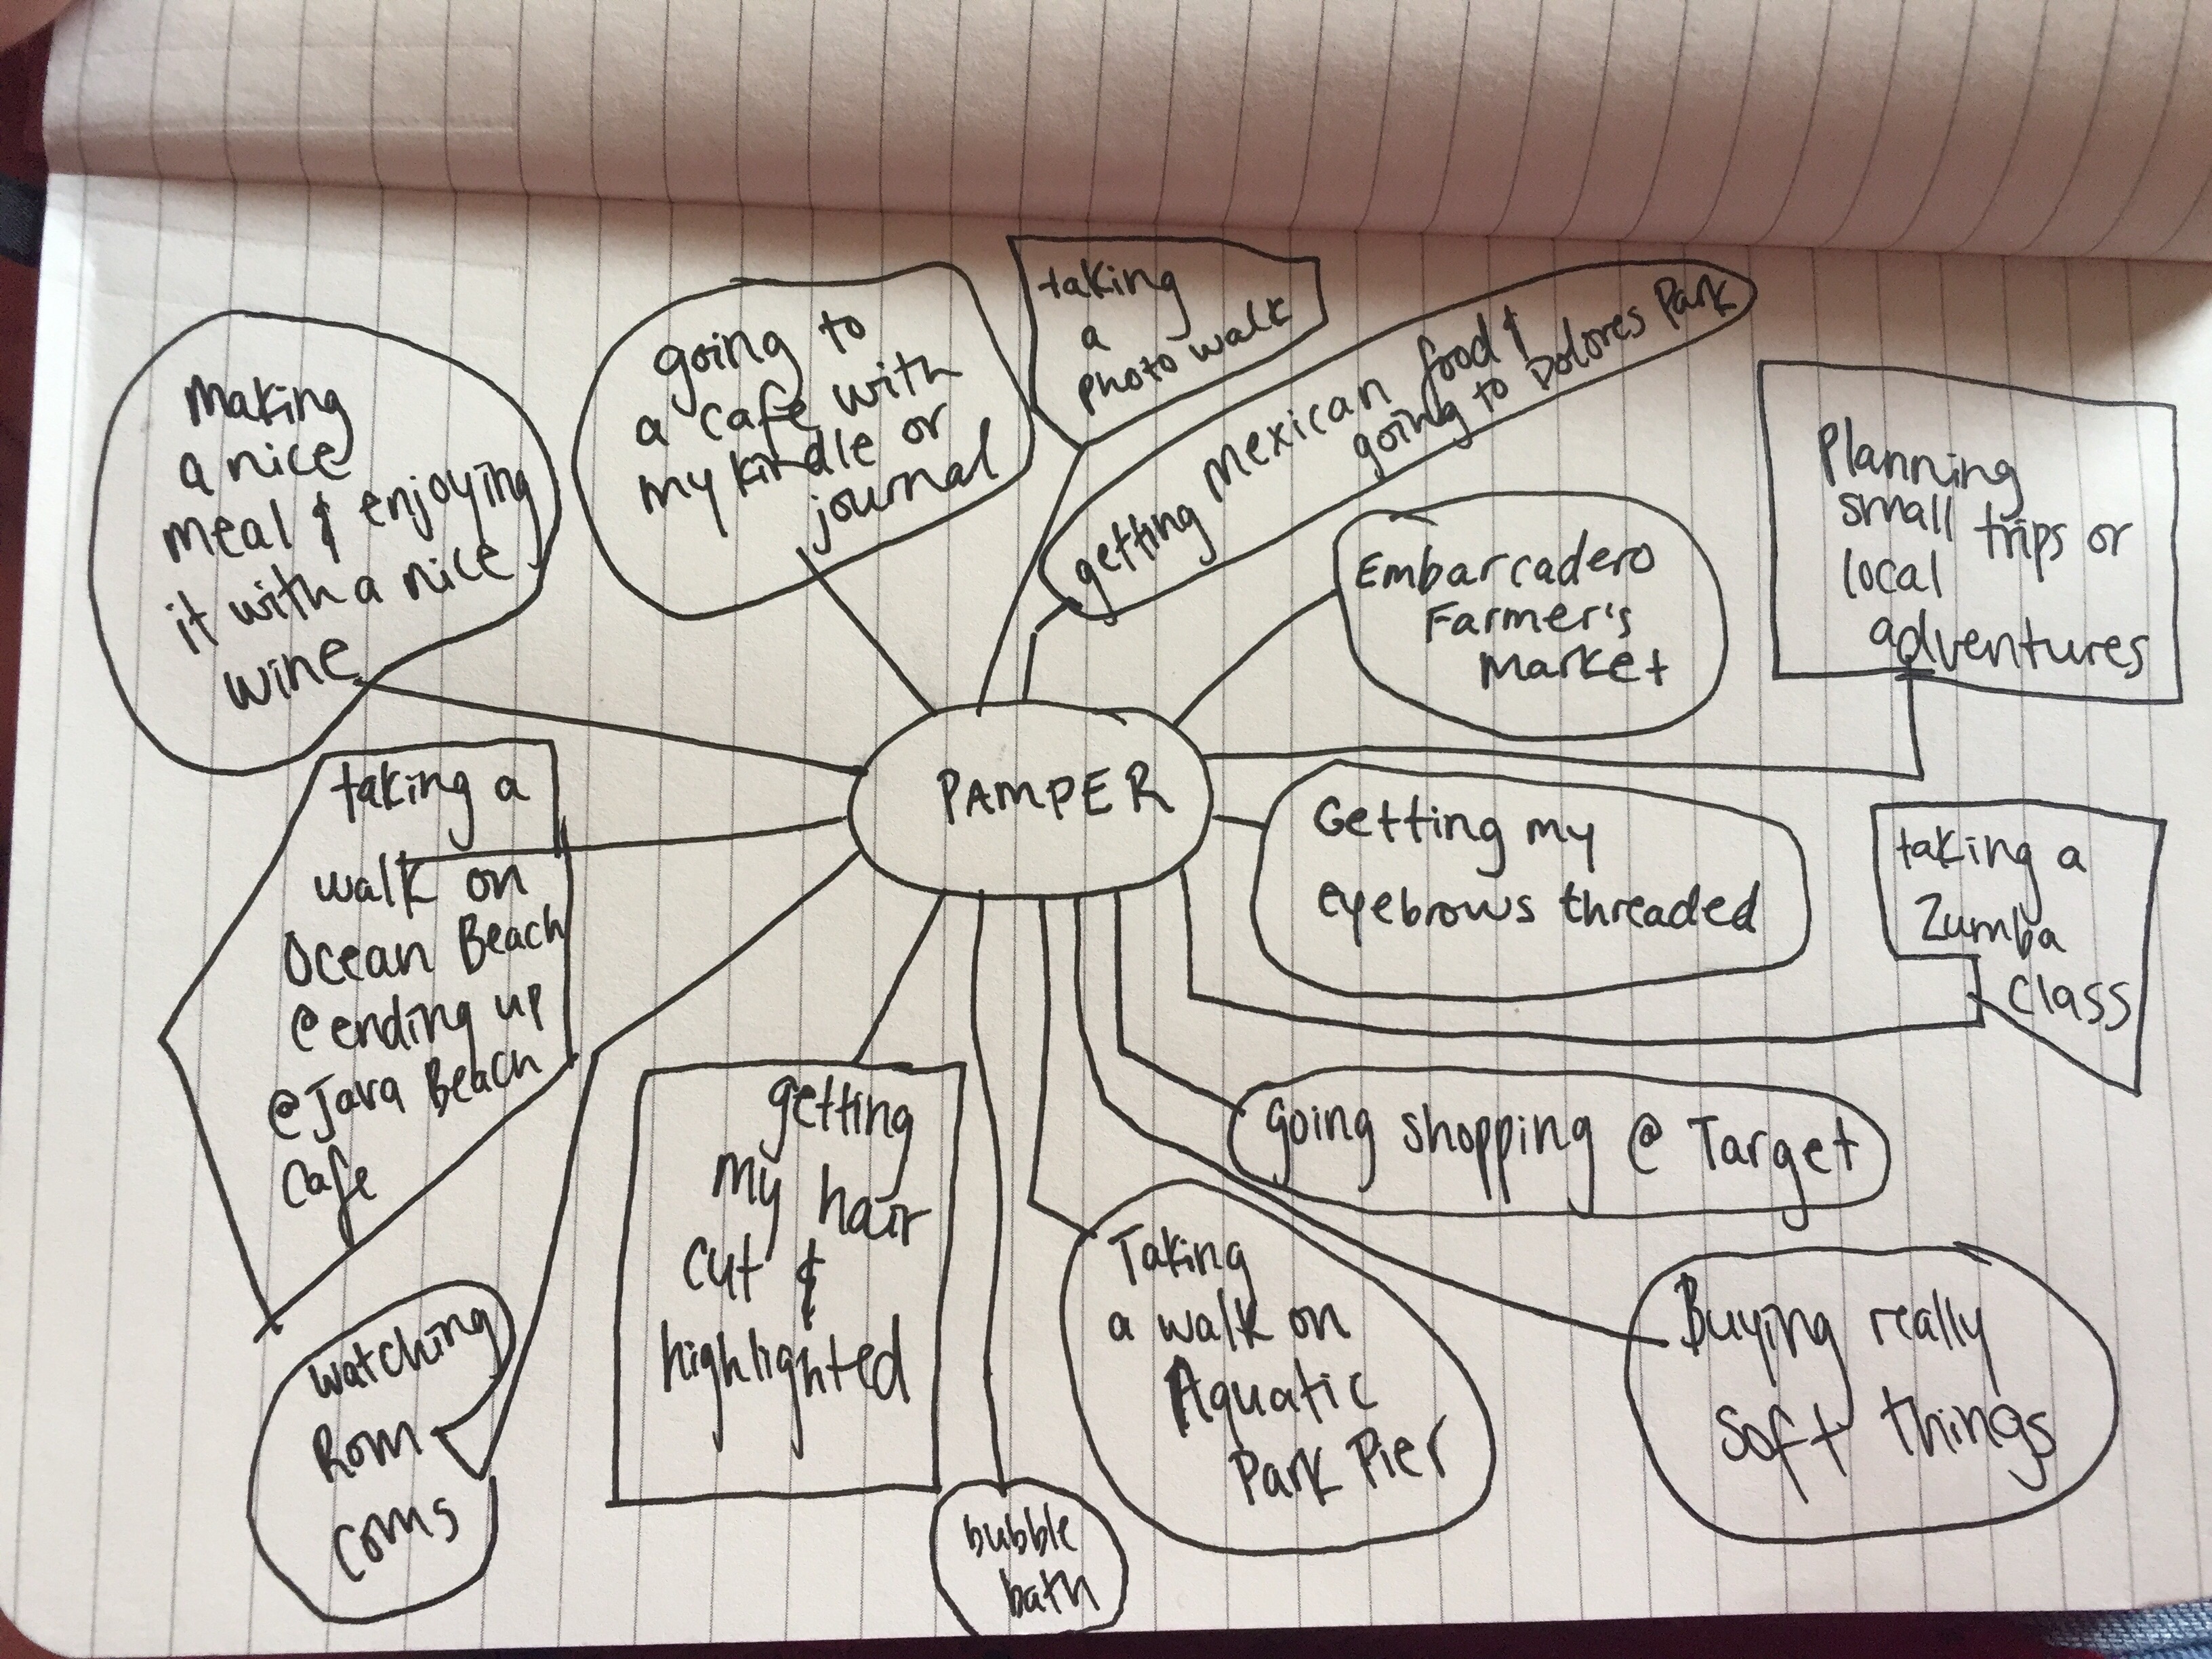 making
a nice
meal & enjoying
it with a nice
wine
going to
a cafe with
my kindle or
journal
taking
a
photo walk
getting mexican food &
going to Dolores Park
Embarcadero
Farmer's
market
Planning
small trips or
local
adventures
PAMPER
taking a
walk on
Ocean Beach
@ ending up
@ Java Beach
Cafe
Getting my
eyebrows threaded
taking a
Zumba
class
going shopping @ Target
watching
Rom
coms
getting
my hair
cut &
highlighted
bubble
bath
Taking
a walk on
Aquatic
Park Pier
Buying really
soft things